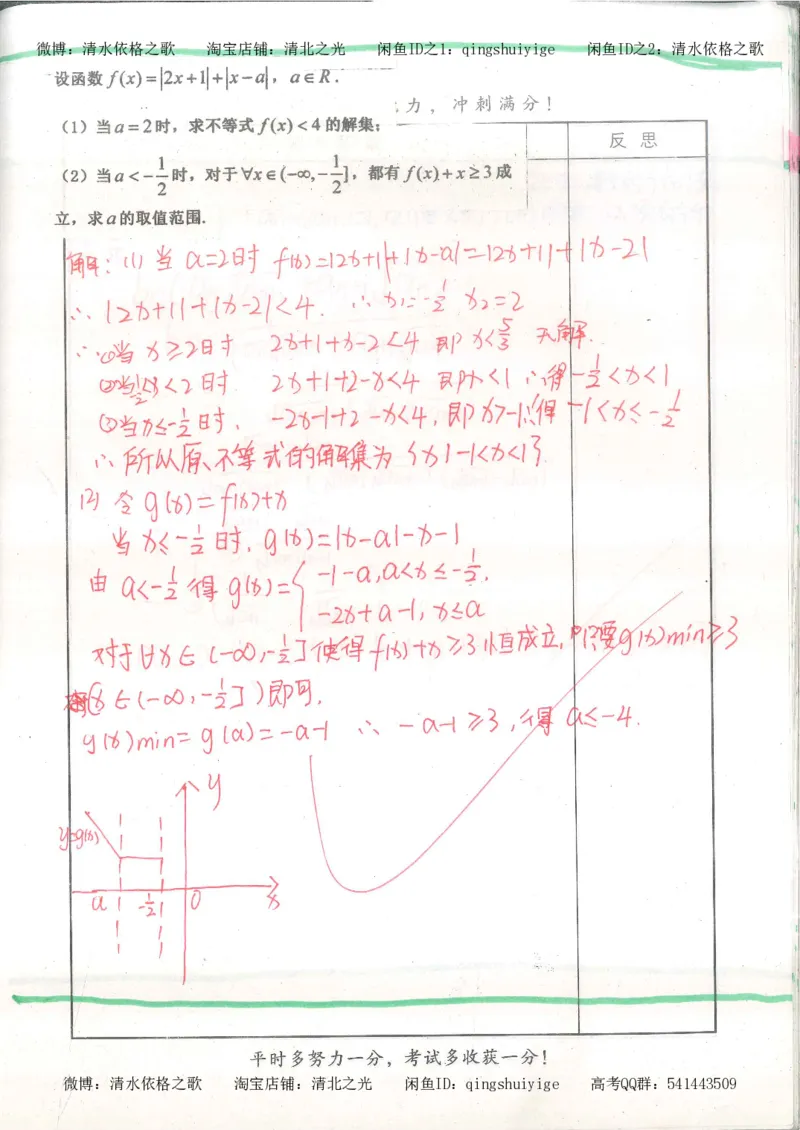 微博：清水依格之歌 淘宝店铺：清北之光 闲鱼ID之1：qingshuiyige 闲鱼ID之2：清水依格之歌
设函数 f(x)=|2x+1|+|x-a|，a∈R.
力，冲刺满分！
（1）当a=2时，求不等式 f(x)<4 的解集；
反思
（2）当a<-1/2时，对于∀x∈(-∞,-1/2]，都有 f(x)+x≥3成
立，求a的取值范围.
解：(1) 当 a=2时 f(x)=|2x+1|+|x-a|=|2x+1|+|x-2|
∴ |2x+1|+|x-2|<4. ∴ x₁=-1/2 x₂=2
∴ ①当 x≥2时 2x+1+x-2<4 即 x<5/3 无解.
②当-1/2<x<2时. 2x+1+2-x<4 即x<1 ∴得-1/2<x<1
③当x≤-1/2时. -2x-1+2-x<4, 即x>-1∴得 -1<x≤-1/2
∴ 所以原不等式的解集为{x|-1<x<1}.
(2) 令 g(x)=f(x)+x
当 x≤-1/2时. g(x)=|x-a|-x-1
由 a<-1/2 得 g(x)={ -1-a, a<x≤-1/2.
-2x+a-1, x≤a
对于∀x∈(-∞,-1/2]使得f(x)+x≥3恒成立, 只要g(x)min≥3
(x∈(-∞,-1/2])即可.
g(x)min=g(a)=-a-1 ∴ -a-1≥3, 得 a≤-4.
y
y=g(x)
a -1/2 0 x
平时多努力一分，考试多收获一分！
微博：清水依格之歌 淘宝店铺：清北之光 闲鱼ID：qingshuiyige 高考QQ群：541443509